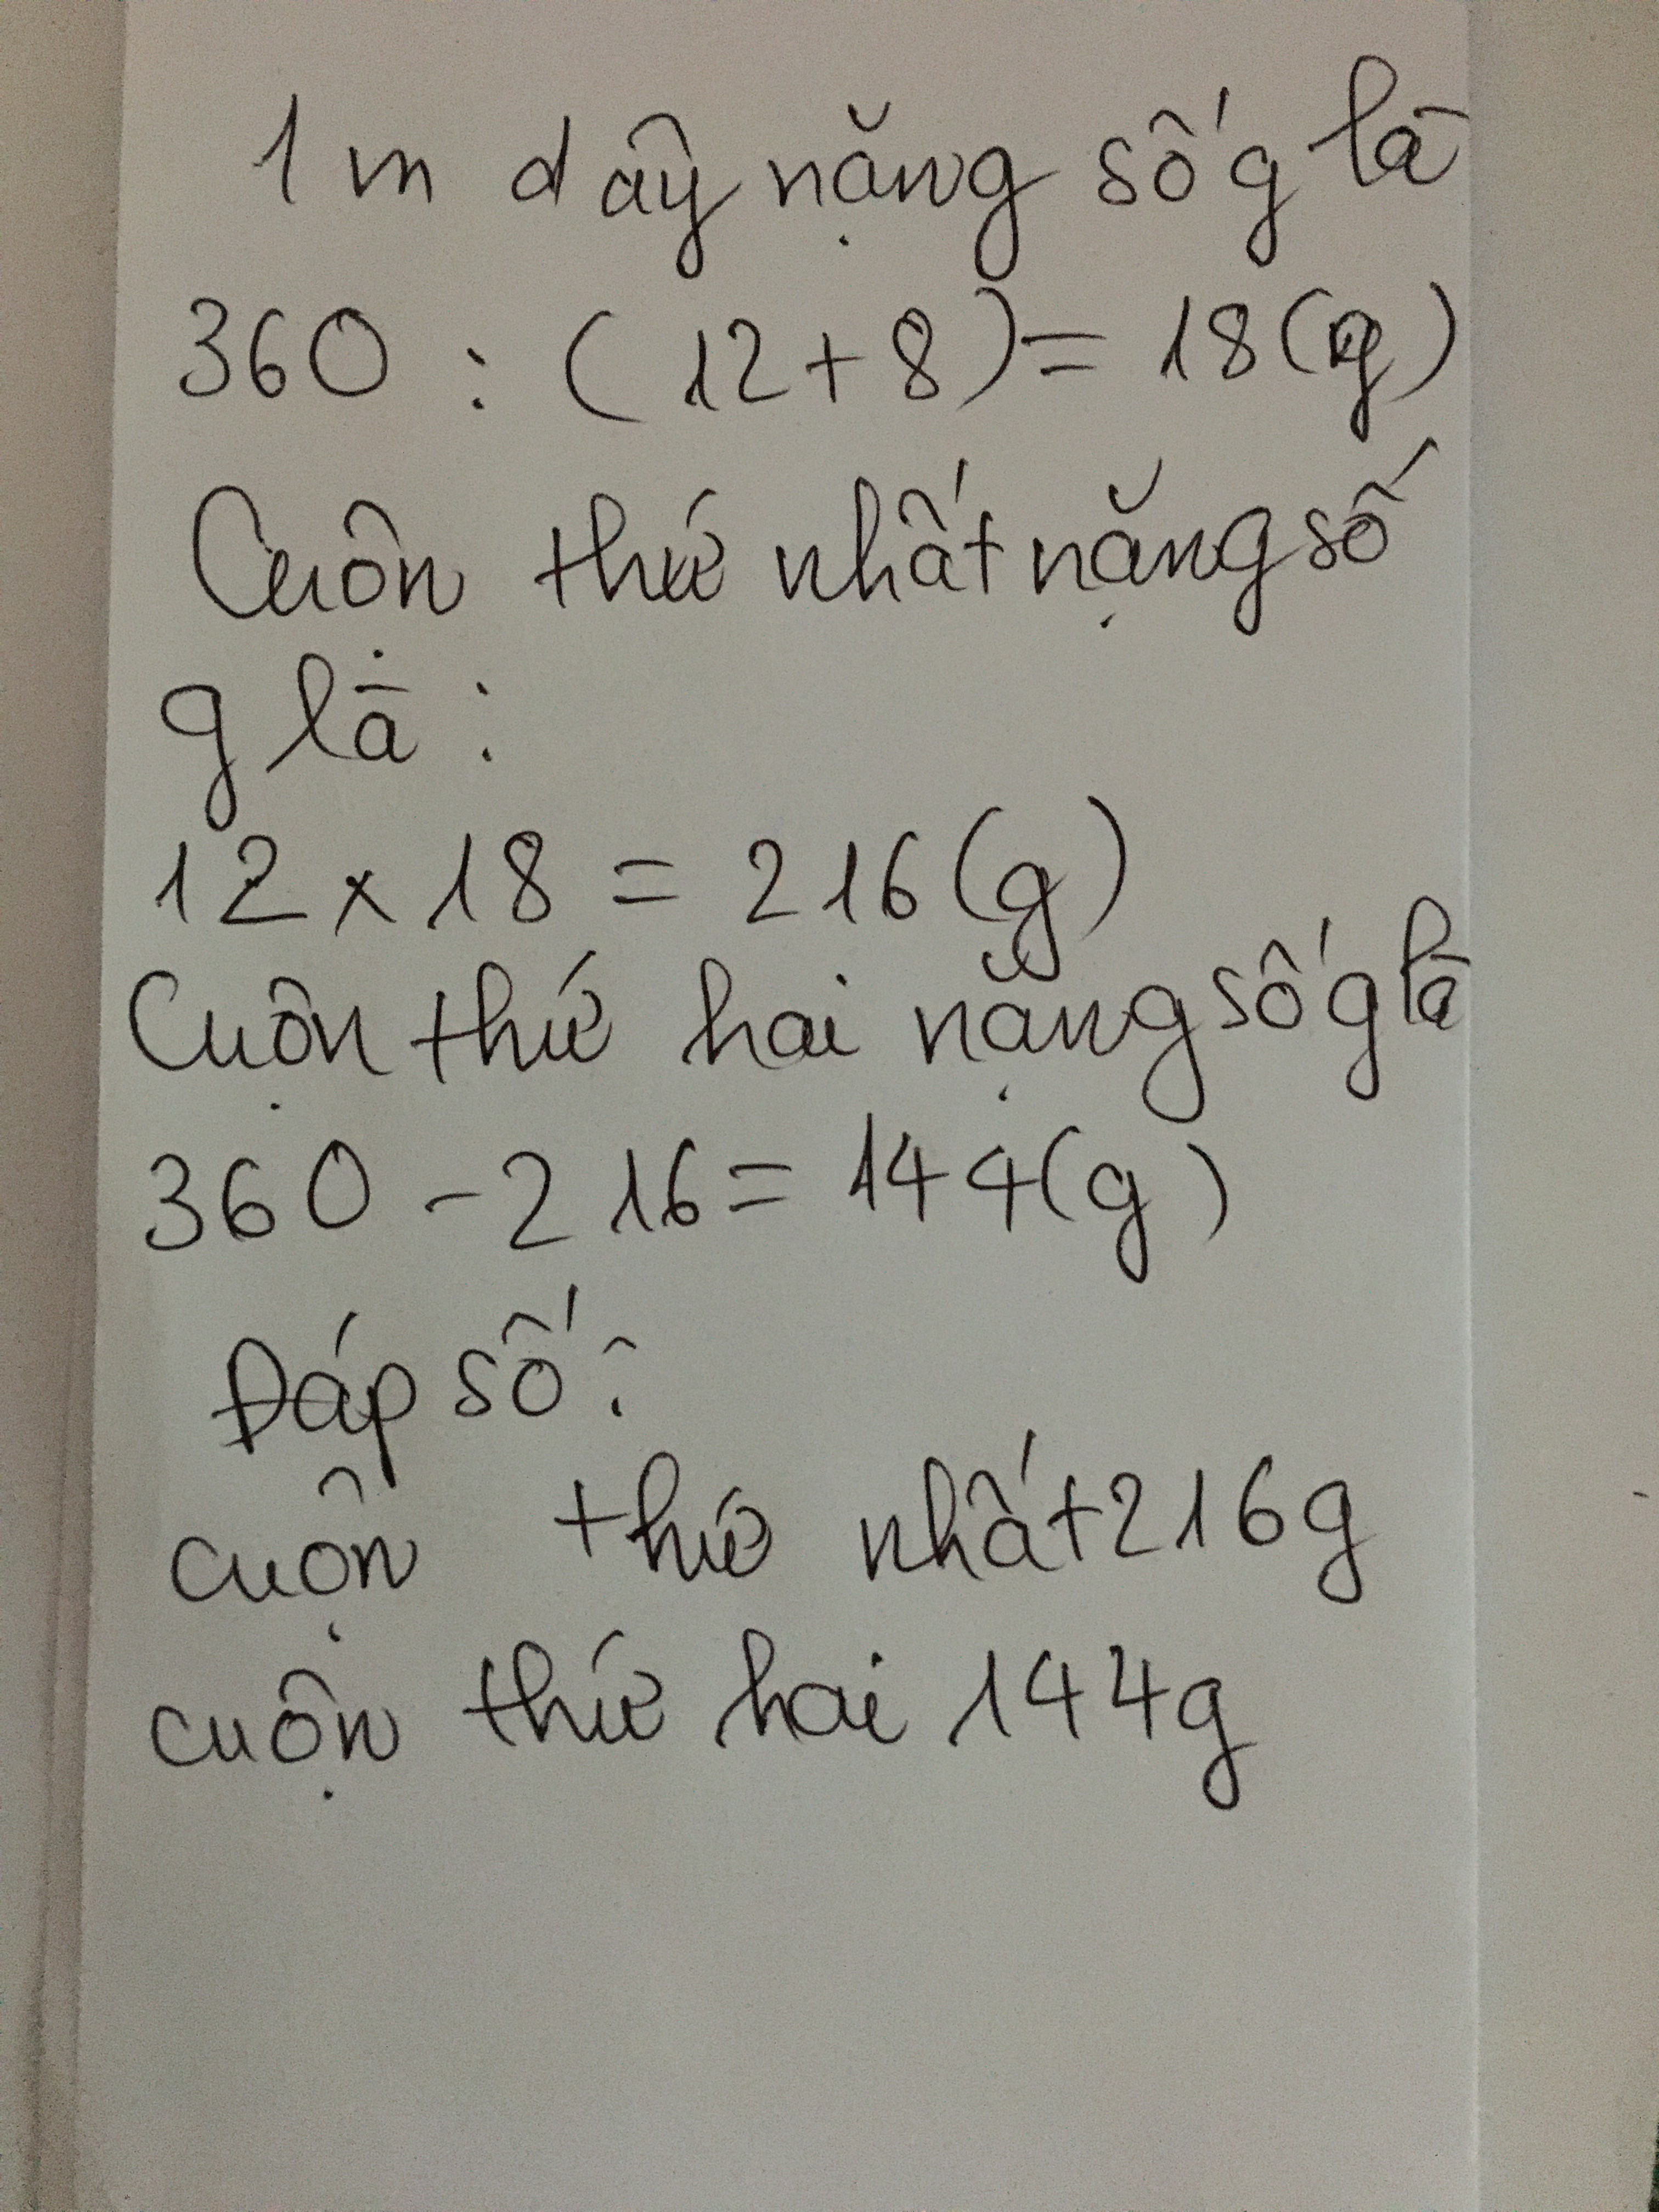 1 m dây nặng số g là
360 : ( 12 + 8 ) = 18 (g)
Cuộn thứ nhất nặng số
g là :
12 x 18 = 216 (g)
Cuộn thứ hai nặng số g là
360 - 216 = 144 (g)
Đáp số :
cuộn thứ nhất 216g
cuộn thứ hai 144g